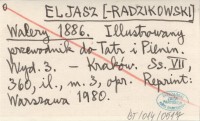 ELJASZ [-RADZIKOWSKI]
Walery 1886. Illustrowany
przewodnik do Tatr i Pienin.
Wyd. 3. – Kraków. Ss. VII
360, il., m. 3, opr. Reprint:
Warszawa 1980.